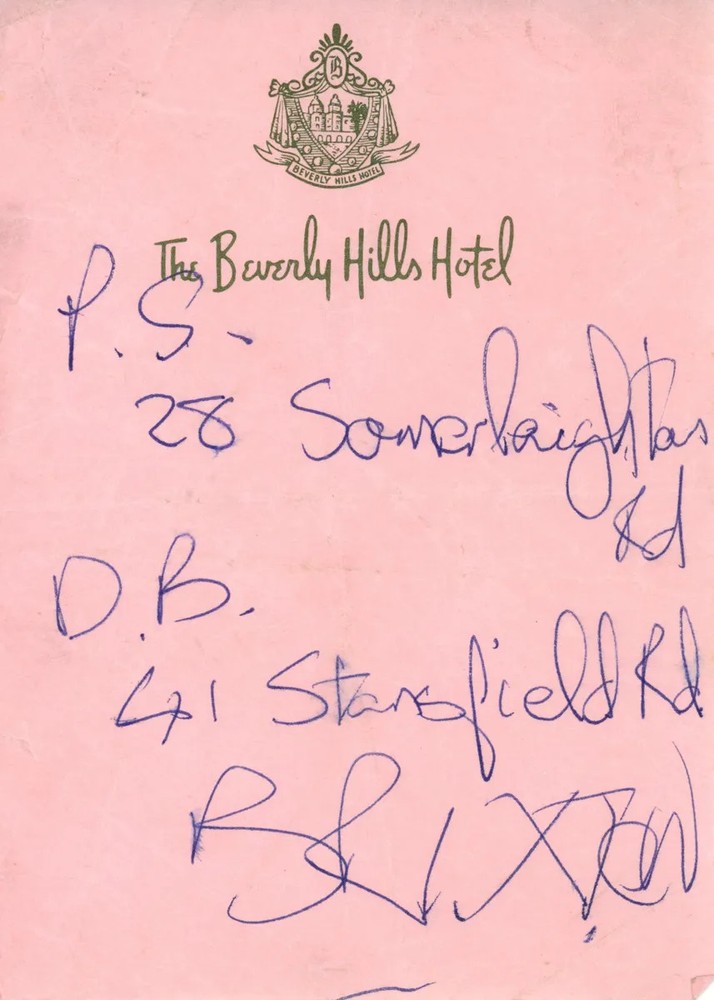 B
BEVERLY HILLS HOTEL
The Beverly Hills Hotel
P.S.
28 Somerleighton
Rd
D.B.
41 Stansfield Rd
BRIXTON